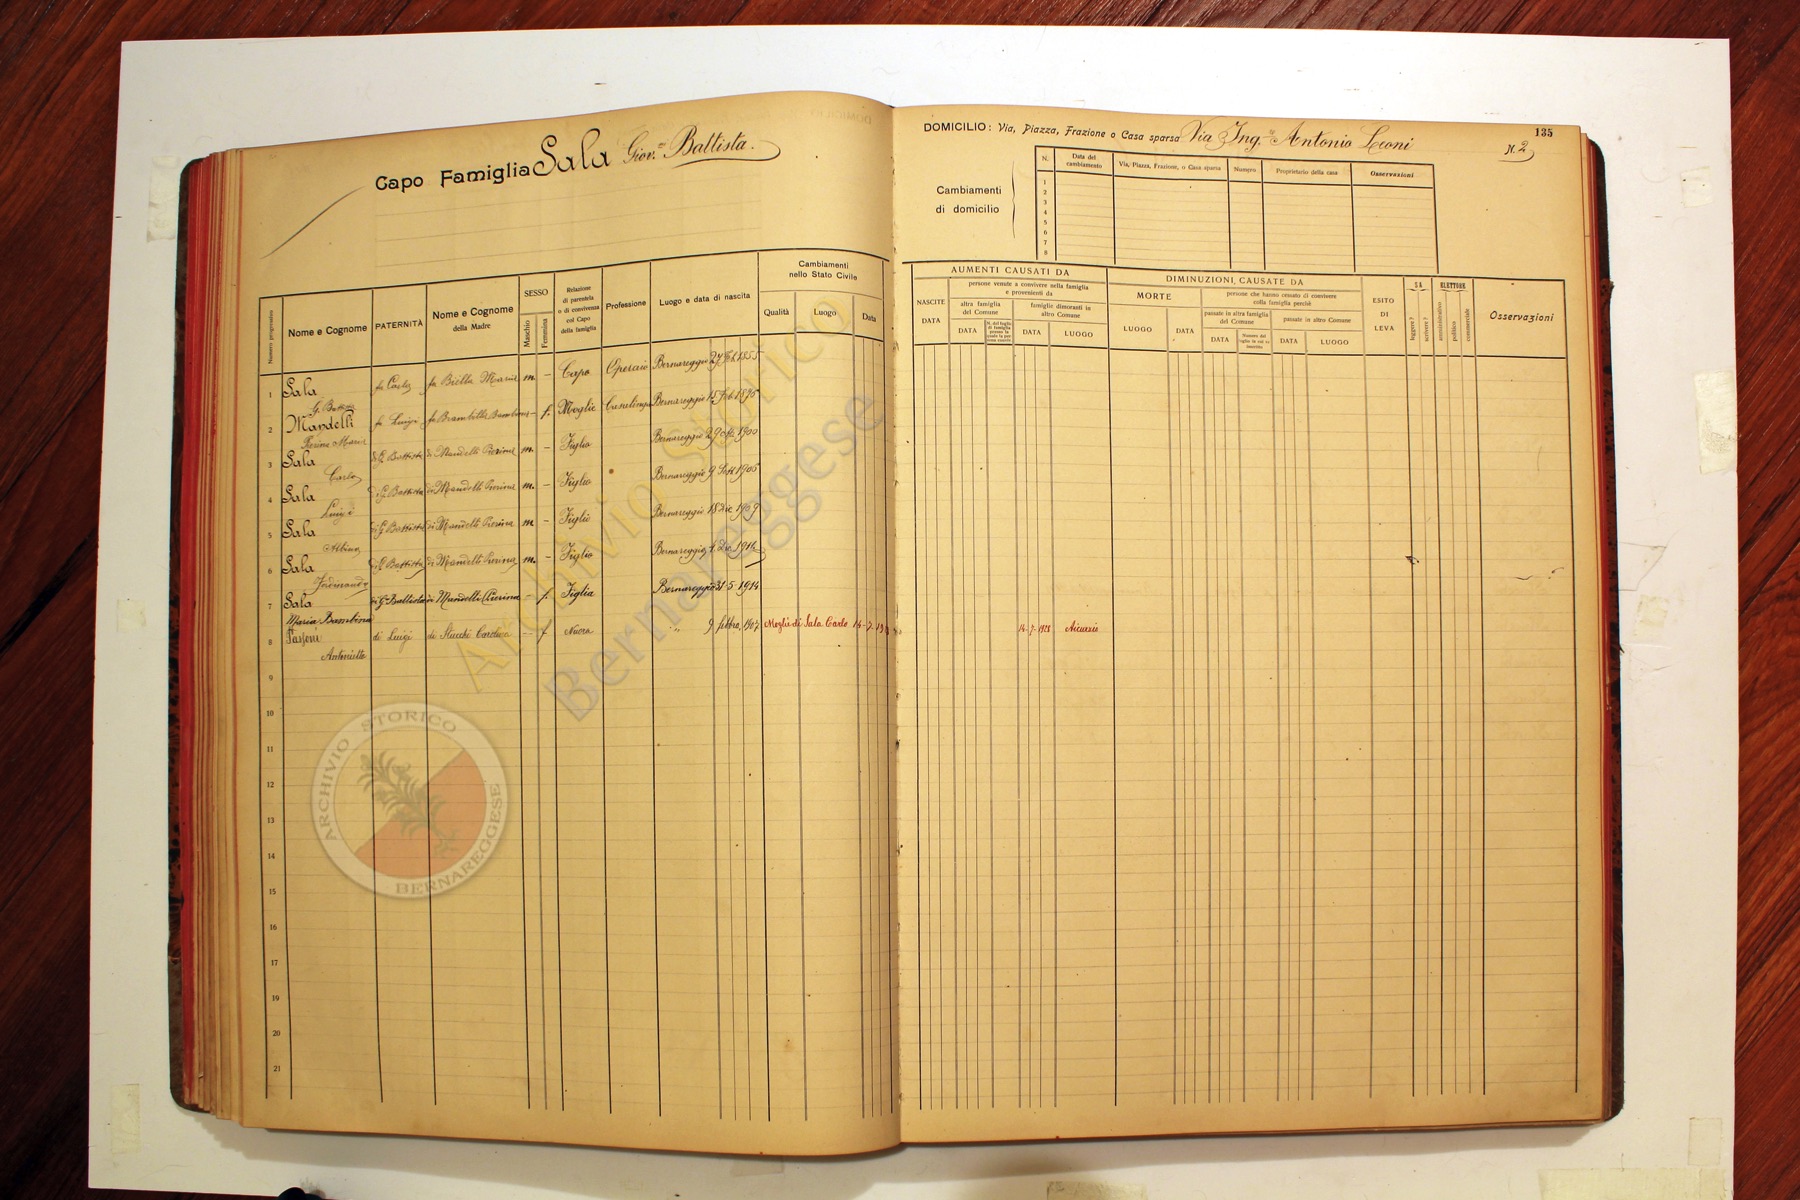 Capo Famiglia Sala Giov. Battista.
DOMICILIO: Via, Piazza, Frazione o Casa sparsa Via Ing. Antonio Leoni N. 2
135
Cambiamenti
di domicilio
N. Data del cambiamento Via, Piazza, Frazione, o Casa sparsa Numero Proprietario della casa Osservazioni
1
2
3
4
5
6
7
8
Numero progressivo
Nome e Cognome
PATERNITÀ
Nome e Cognome
della Madre
SESSO
Maschio
Femmina
Relazione
di parentela
o di convivenza
col Capo
della famiglia
Professione
Luogo e data di nascita
Cambiamenti
nello Stato Civile
Qualità Luogo Data
NASCITE
DATA
AUMENTI CAUSATI DA
persone venute a convivere nella famiglia
e provenienti da
altra famiglia
del Comune
DATA
famiglie dimoranti in
altro Comune
DATA LUOGO
DIMINUZIONI CAUSATE DA
MORTE
LUOGO DATA
persone che hanno cessato di convivere
colla famiglia perchè
passate in altra famiglia
del Comune
DATA
passate in altro Comune
DATA LUOGO
ESITO
DI
LEVA
SA
leggere ?
scrivere ?
ELETTORE
amministrativo
politico
commerciale
Osservazioni
1 Sala G. Battista fu Carlo fu Biella Maria m. - Capo Operaio Bernareggio 27 1855
2 Mandelli Pierina Maria fu Luigi fu Brambilla Bambina - f. Moglie Casalinga Bernareggio 15 Feb. 1876
3 Sala Carlo di G. Battista di Mandelli Pierina m. - Figlio Bernareggio 29 1900
4 Sala Luigi di G. Battista di Mandelli Pierina m. - Figlio Bernareggio 9 Sett. 1906
5 Sala Albino di G. Battista di Mandelli Pierina m - Figlio Bernareggio 18 Dic 1909
6 Sala Ferdinando di G. Battista di Mandelli Pierina m. - Figlio Bernareggio Dic. 1916
7 Sala Maria Bambina di G. Battista di Mandelli Pierina - f. Figlia Bernareggio 31-5-1914
8 Passoni Antonietta di Luigi di Stucchi Carolina - f Nuora " 9 febbr. 1907 Moglie di Sala Carlo 14-7-19 14-7-1928 Aicurzio
9
10
11
12
13
14
15
16
17
18
19
20
21
Archivio Storico
Bernareggese
ARCHIVIO STORICO
BERNAREGGESE